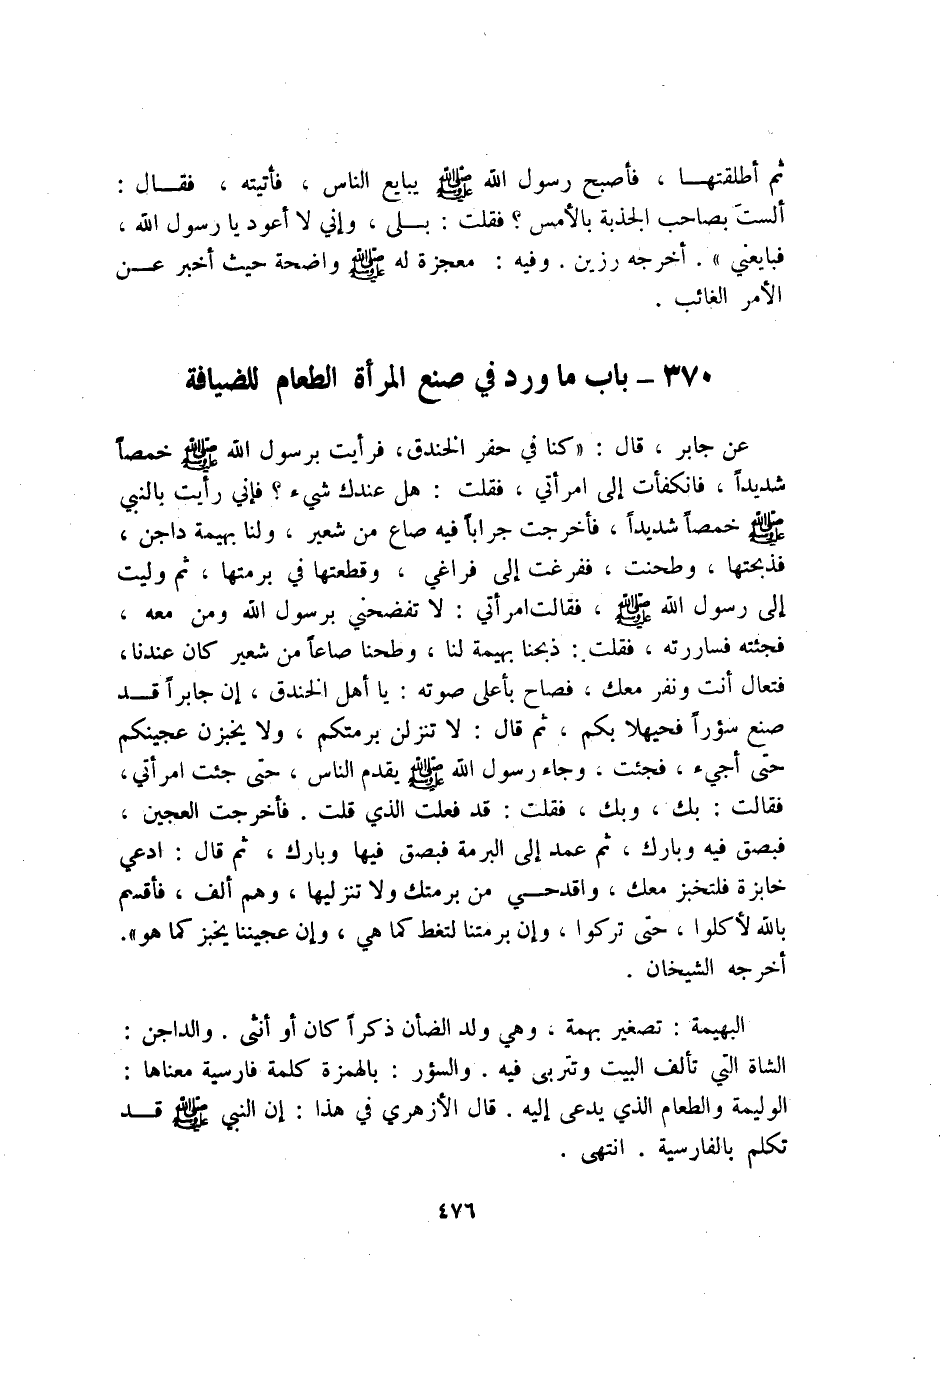 ثم أطلقتهـا ، فأصبح رسول الله ﷺ يبايع الناس ، فأتيته ، فقـال :
ألستَ بصاحب الجذبة بالأمس ؟ فقلت : بـلى ، وإني لا أعود يا رسول الله ،
فبايعني » . أخرجه رزين . وفيه : معجزة له ﷺ واضحة حيث أخبر عـن
الأمر الغائب .
٣٧٠ – باب ما ورد في صنع المرأة الطعام للضيافة
عن جابر ، قال : «كنا في حفر الخندق، فرأيت برسول الله ﷺ خمصاً
شديداً ، فانكفأت إلى امرأتي ، فقلت : هل عندك شيء ؟ فإني رأيت بالنبي
ﷺ خمصاً شديداً ، فأخرجت جراباً فيه صاع من شعير ، ولنا بهيمة داجن ،
فذبحتها ، وطحنت ، ففرغت إلى فراغي ، وقطعتها في برمتها ، ثم وليت
إلى رسول الله ﷺ ، فقالت امرأتي : لا تفضحني برسول الله ومن معه ،
فجئته فساررته ، فقلت : ذبحنا بهيمة لنا ، وطحنا صاعاً من شعير كان عندنا،
فتعال أنت ونفر معك ، فصاح بأعلى صوته : يا أهل الخندق ، إن جابراً قـد
صنع سؤراً فحيهلا بكم ، ثم قال : لا تنزلن برمتكم ، ولا يخبزن عجينكم
حتى أجيء ، فجئت ، وجاء رسول الله ﷺ يقدم الناس ، حتى جئت امرأتي،
فقالت : بك ، وبك ، فقلت : قد فعلت الذي قلت . فأخرجت العجين ،
فبصق فيه وبارك ، ثم عمد إلى البرمة فبصق فيها وبارك ، ثم قال : ادعي
خابزة فلتخبز معك ، واقدحـي من برمتك ولا تنزليها ، وهم ألف ، فأقسم
بالله لأكلوا ، حتى تركوا ، وإن برمتنا لتغط كما هي ، وإن عجيننا يخبز كما هو».
أخرجه الشيخان .
البهيمة : تصغير بهمة ، وهي ولد الضأن ذكراً كان أو أنثى . والداجن :
الشاة التي تألف البيت وتتربى فيه . والسؤر : بالهمزة كلمة فارسية معناها :
الوليمة والطعام الذي يدعى إليه . قال الأزهري في هذا : إن النبي ﷺ قـد
تكلم بالفارسية . انتهى .
٤٧٦